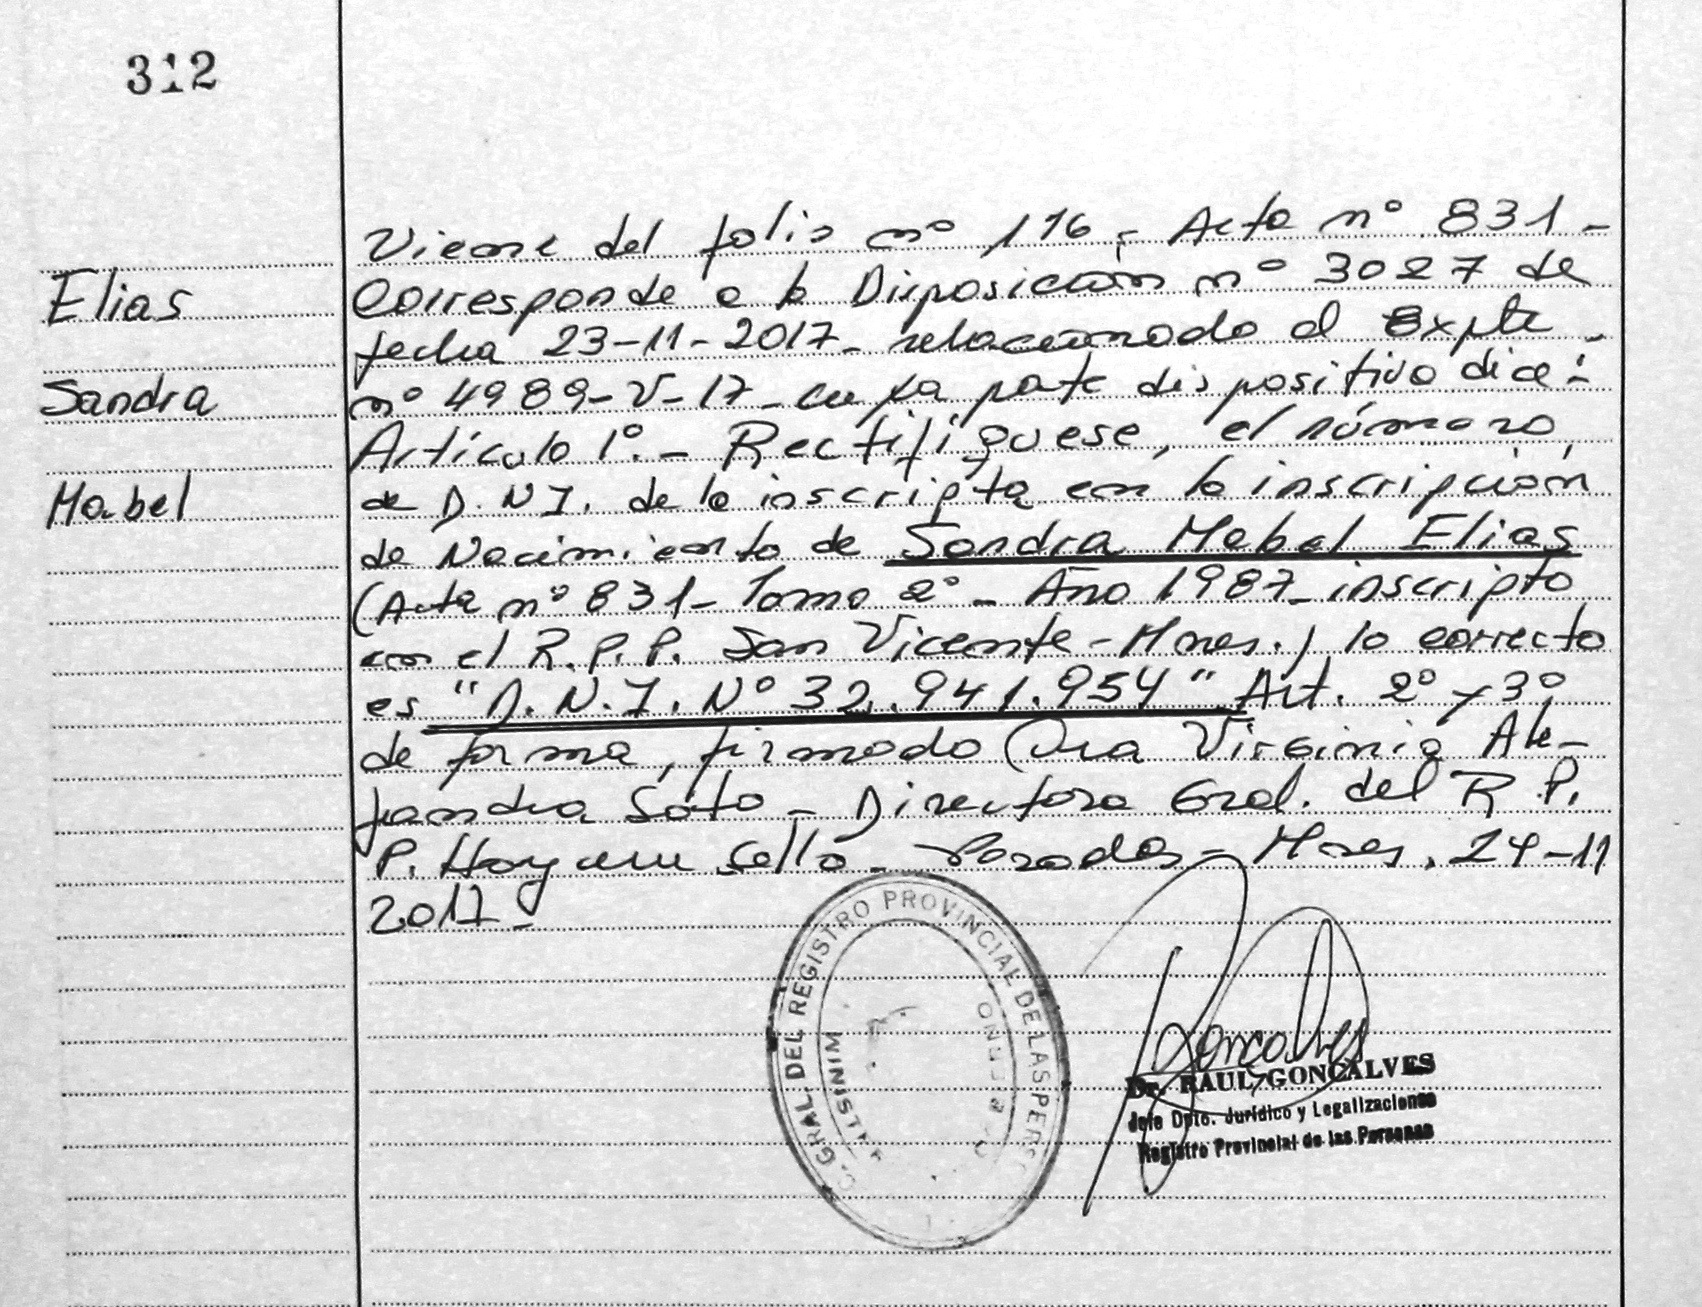 312
Elias
Sandra
Mabel
Viene del folio nº 116,- Acta nº 831-
Corresponde a la Disposición nº 3027 de
fecha 23-11-2017- relacionado al Expte
nº 4989-V-17- en la parte dispositiva dice:
Artículo 1º.- Rectifíquese, el número
de D.N.I. de la inscripta en la inscripción
de Nacimiento de Sandra Mabel Elias
(Acta nº 831- Tomo 2º - Año 1987- inscripto
en el R.P.P. San Vicente - Mnes.) lo correcto
es "D.N.I. Nº 32.941.954" Art. 2º y 3º
de forma, firmado Dra Virginia Ale-
jandra Soto - Directora Gral. del R.P.
P. Hay un sello - Posadas - Mnes, 24-11
2017-
GRAL. DEL REGISTRO PROVINCIAL DE LAS PERSO
MINIST
Goncalves
Dr. RAUL GONCALVES
Jefe Dpto. Jurídico y Legalizaciones
Registro Provincial de las Personas